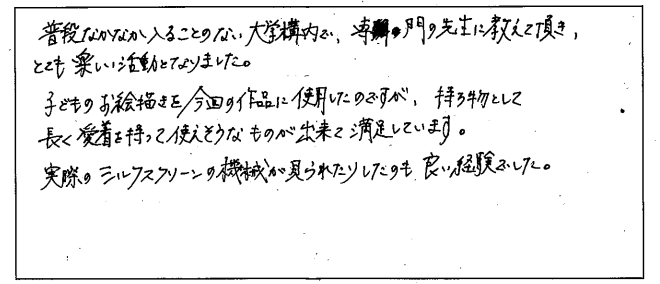 普段なかなか入ることのない大学構内で、専門の先生に教えて頂き、
とても楽しい活動となりました。
子どものお絵描きを今回の作品に使用したのですが、持ち物として
長く愛着を持って使えそうなものが出来て満足しています。
実際のシルクスクリーンの機械が見られたりしたのも良い経験でした。